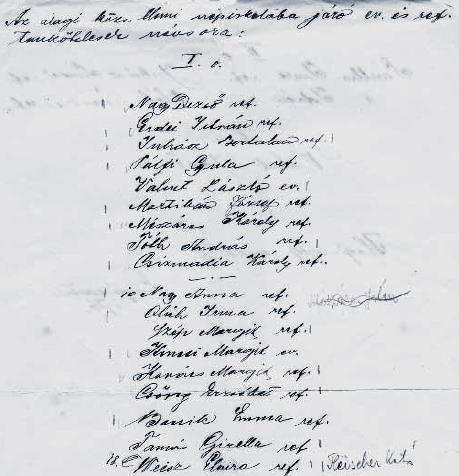 Az alagi közs. elemi népiskolába járó ev. és ref.
tankötelesek névsora:
I. o.
Nagy Dezső ref.
Erdei István ref.
Juhász Bertalan ref.
Pálfi Gyula ref.
Valent László ev.
József ref.
Mészáros Károly ref.
Tóth András ref.
Csizmadia Károly ref.
10 Nagy Anna ref.
Oláh Irma ref.
Szép Margit ref.
Margit ev.
Kovács Margit ref.
Erzsébet ref.
Emma ref.
Gizella ref
18. Elvira ref. Kató